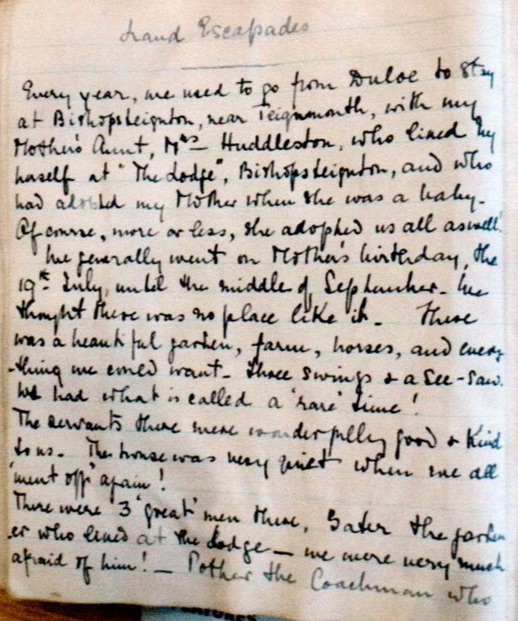 Land Escapades
Every year, we used to go from Duloe to stay
at Bishopsteignton, near Teignmouth, with my
Mother's Aunt, Mrs Huddleston, who lived by
herself at "The Lodge", Bishopsteignton, and who
had adopted my Mother when she was a baby.
Of course, more or less, she adopted us all as well!
We generally went on Mother's birthday, the
19th July, until the middle of September. We
thought there was no place like it. There
was a beautiful garden, farm, horses, and every
-thing we could want - three swings & a See-Saw.
We had what is called a 'rare' time!
The servants there were wonderfully good & kind
to us. The house was very quiet when we all
'went off' again!
There were 3 'great' men there, Bater the garden
-er who lived at the Lodge - we were very much
afraid of him! - Pother the Coachman who
FEATURES